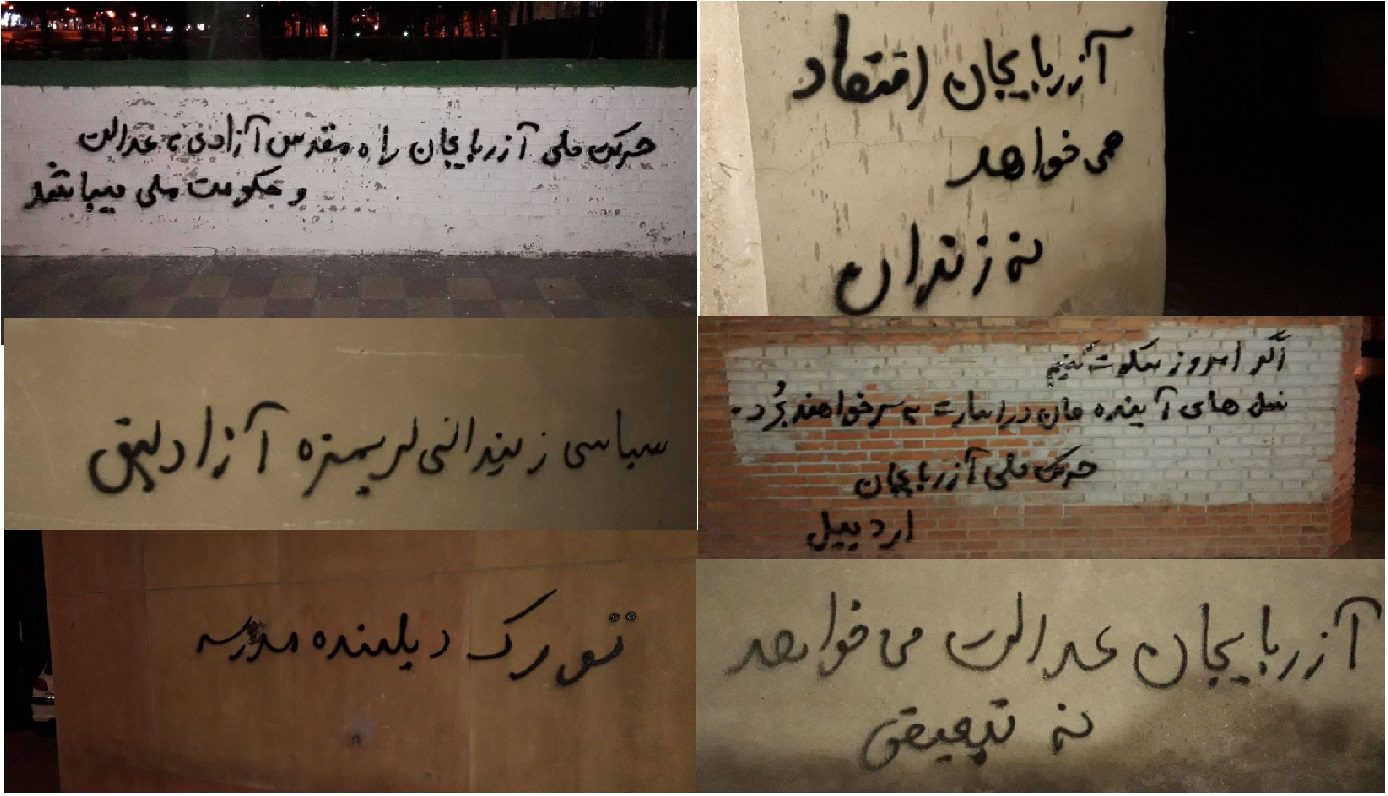 حرکت ملی آزربایجان راه مقدس آزادی، عدالت
و حکومت ملی میباشد
آزربایجان اقتصاد
می خواهد
نه زندان
سیاسی زیندانی لریمیزه آزادلیق
اگر امروز سکوت کنیم
نسل های آینده مان در اسارت به سر خواهند بُرد.
حرکت ملی آزربایجان
اردبیل
تورک دیلینده مدرسه
آزربایجان عدالت می خواهد
نه تبعیض